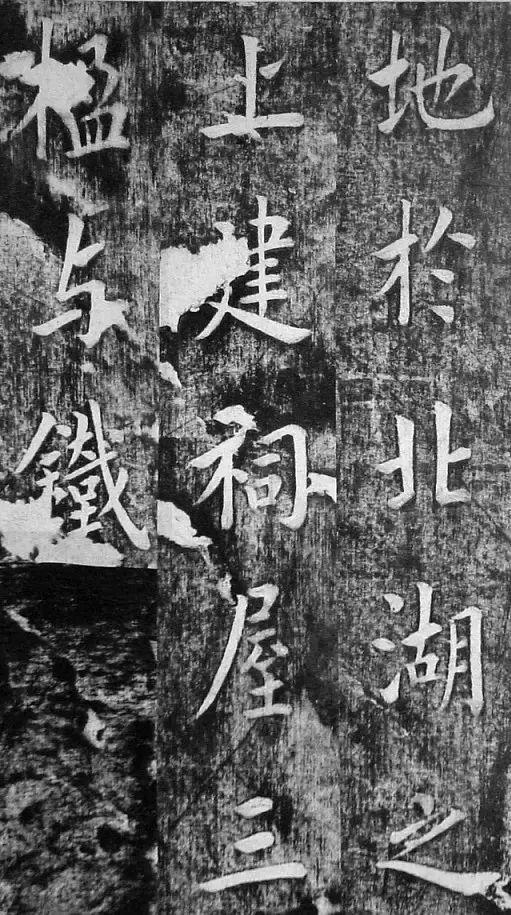 地於北湖之
上建祠屋三
楹与鐵